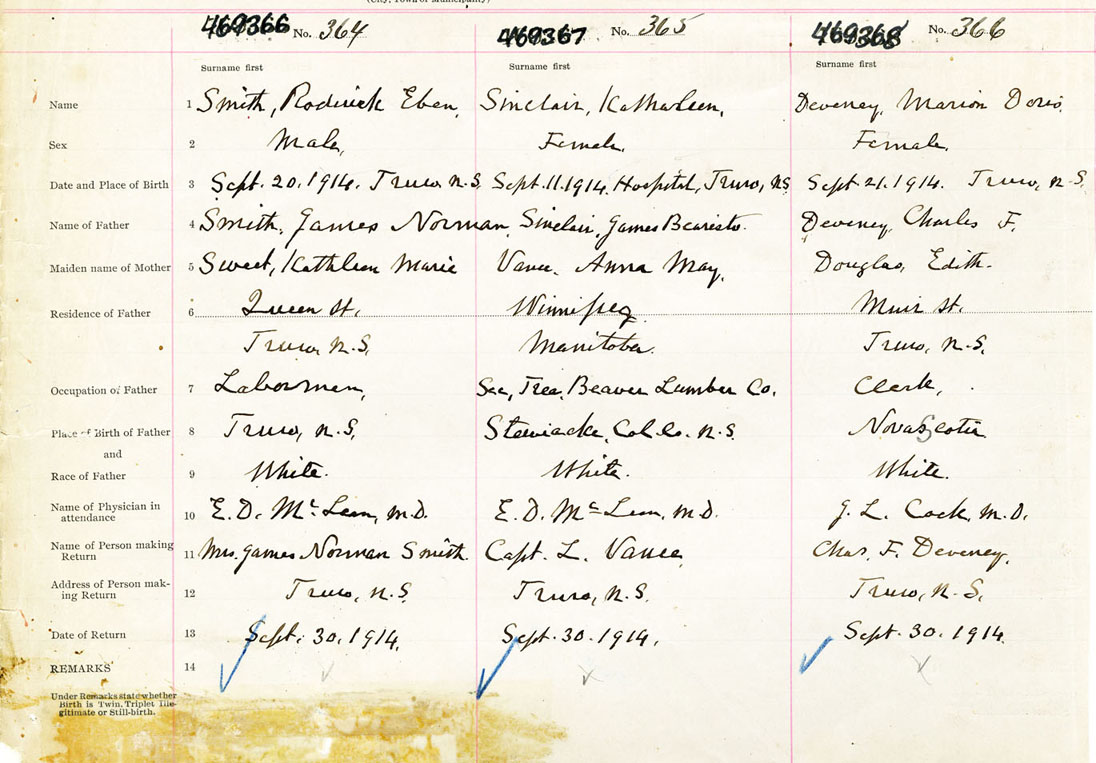 (City, Town or Municipality)
469366 No. 364 469367 No. 365 469368 No. 366
Surname first Surname first Surname first
Name 1 Smith, Roderick Eben, Sinclair, Kathaleen, Deveney, Marion Doris.
Sex 2 Male, Female. Female.
Date and Place of Birth 3 Sept. 20. 1914. Truro, N.S. Sept. 11. 1914. Hospital, Truro, N.S. Sept. 21. 1914. Truro, N.S.
Name of Father 4 Smith, James Norman, Sinclair, James Bearisto. Deveney, Charles F.
Maiden name of Mother 5 Sweet, Kathleen Marie Vance. Anna May, Douglas, Edith.
Residence of Father 6 Queen St. Winnipeg. Muir St.
Truro, N.S. Manitoba. Truro, N.S.
Occupation of Father 7 Beaver Lumber Co. Clerk,
Place of Birth of Father 8 Truro, N.S. Stewiacke, Col. Co. N.S. Nova Scotia
and
Race of Father 9 White. White. White.
Name of Physician in
attendance 10 E. D. McLean, M.D. E. D. McLean, M.D. G. L. Cock, M.D.
Name of Person making
Return 11 Mrs. James Norman Smith. Capt. L. Vance, Chas. F. Deveney,
Address of Person mak-
ing Return 12 Truro, N.S. Truro, N.S. Truro, N.S.
Date of Return 13 Sept. 30. 1914. Sept. 30. 1914. Sept. 30. 1914.
REMARKS 14
Under Remarks state whether
Birth is Twin, Triplet Ille-
gitimate or Still-birth.